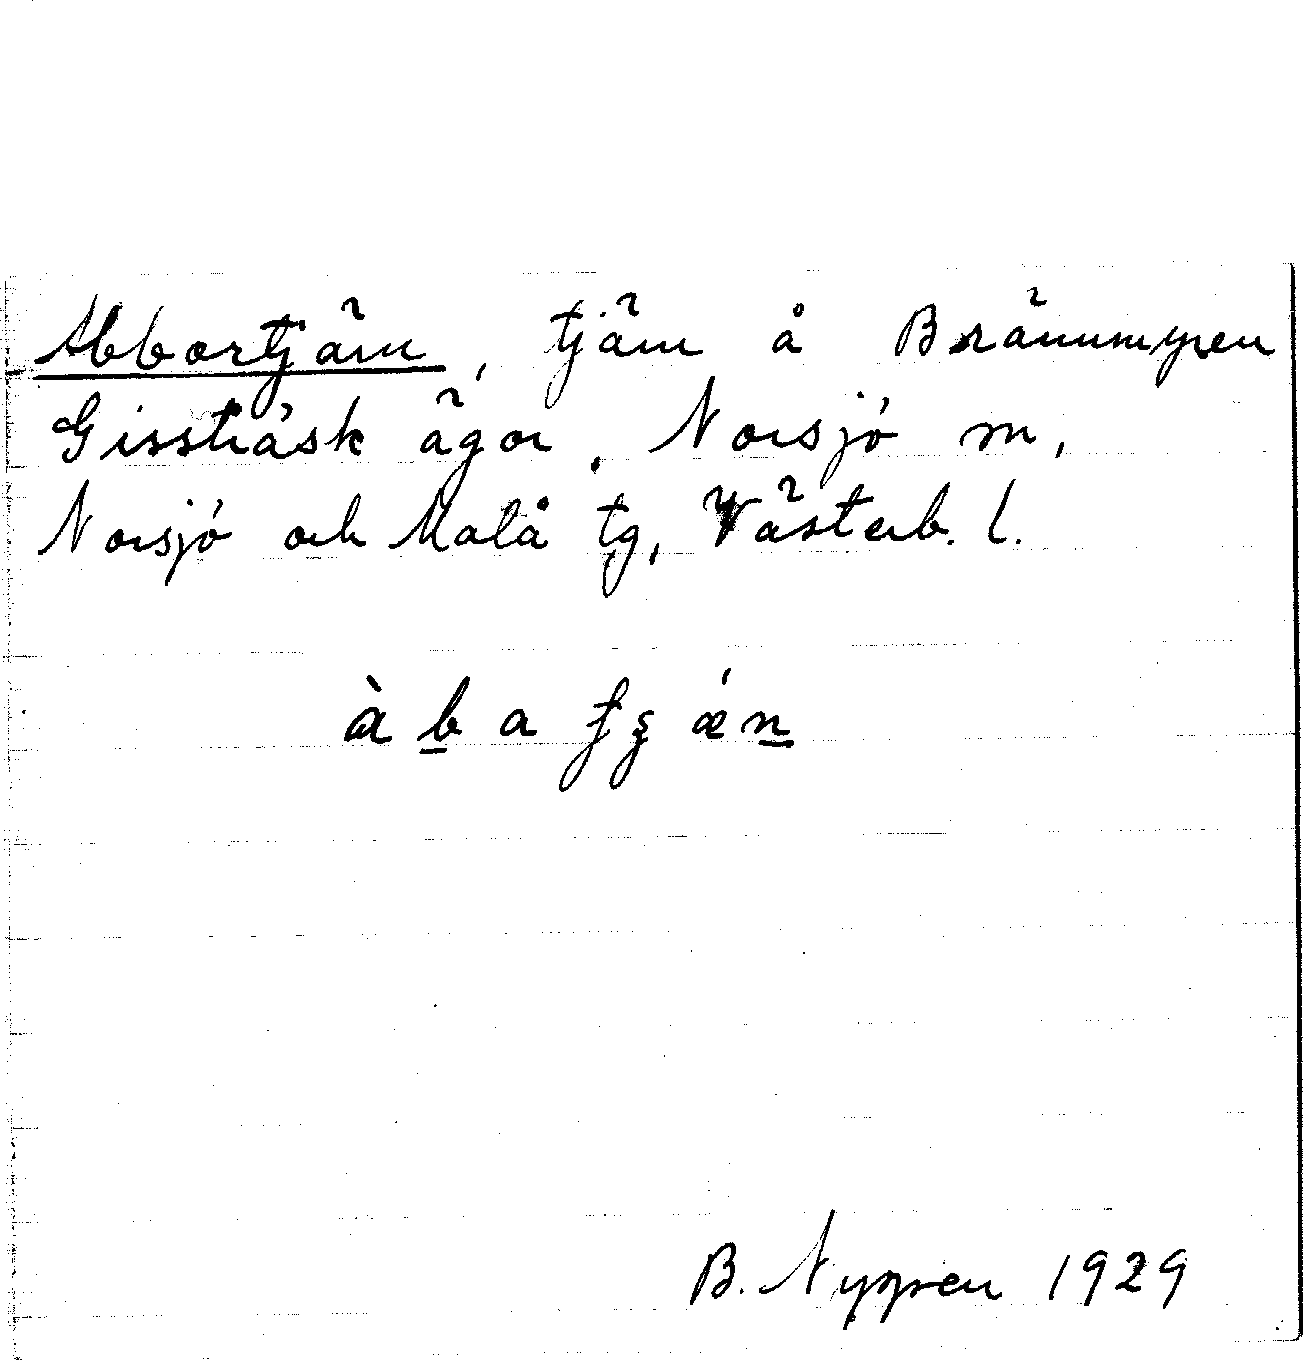 Abbortjärn, tjärn å Brännmyren
Gissträsk ägor, Norsjö sn,
Norsjö och Malå tg, Västerb. l.
àbatʒǽn
B. Nygren 1929